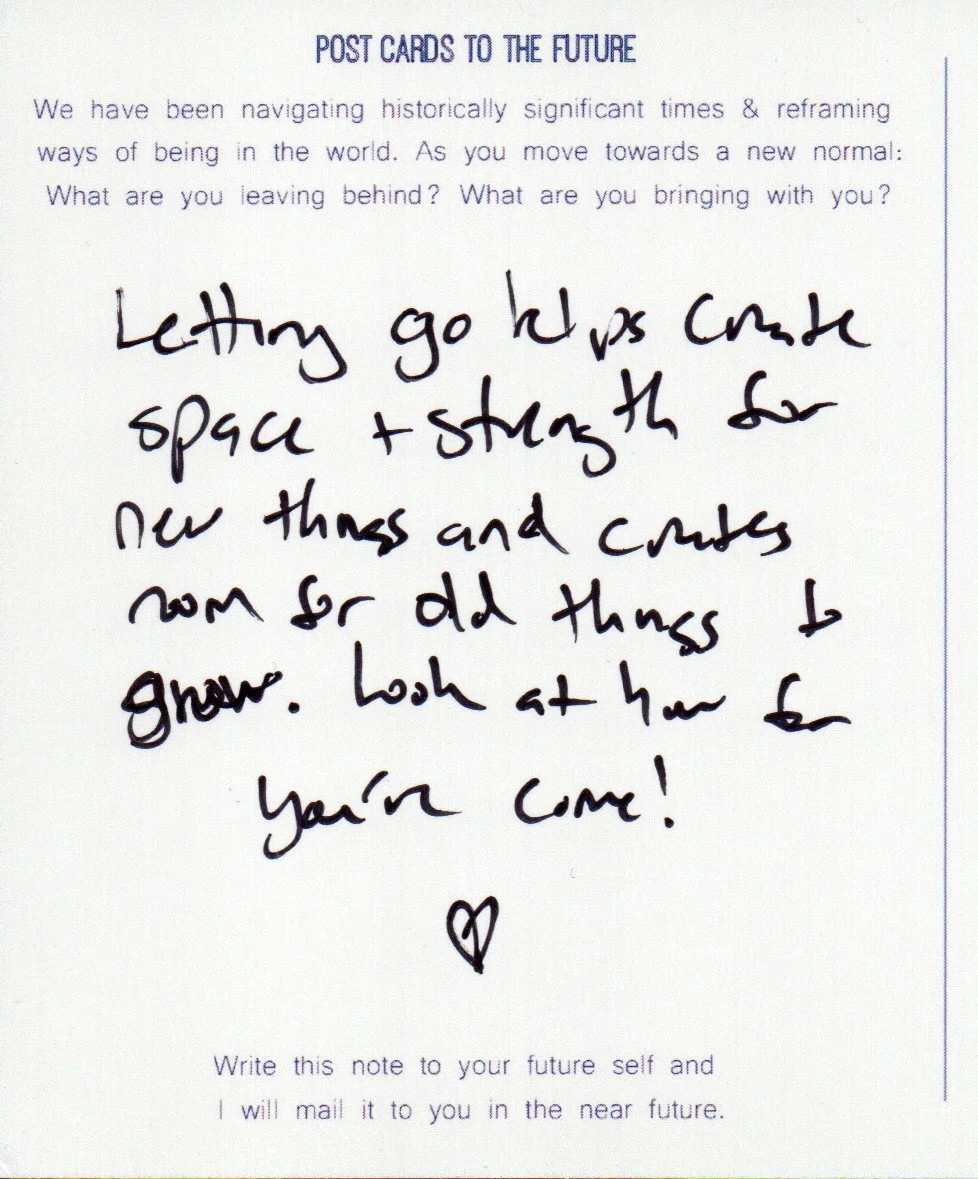 POST CARDS TO THE FUTURE
We have been navigating historically significant times & reframing
ways of being in the world. As you move towards a new normal:
What are you leaving behind? What are you bringing with you?
Letting go helps create
space + strength for
new things and creates
room for old things to
grow. Look at how far
you've come!
Write this note to your future self and
I will mail it to you in the near future.